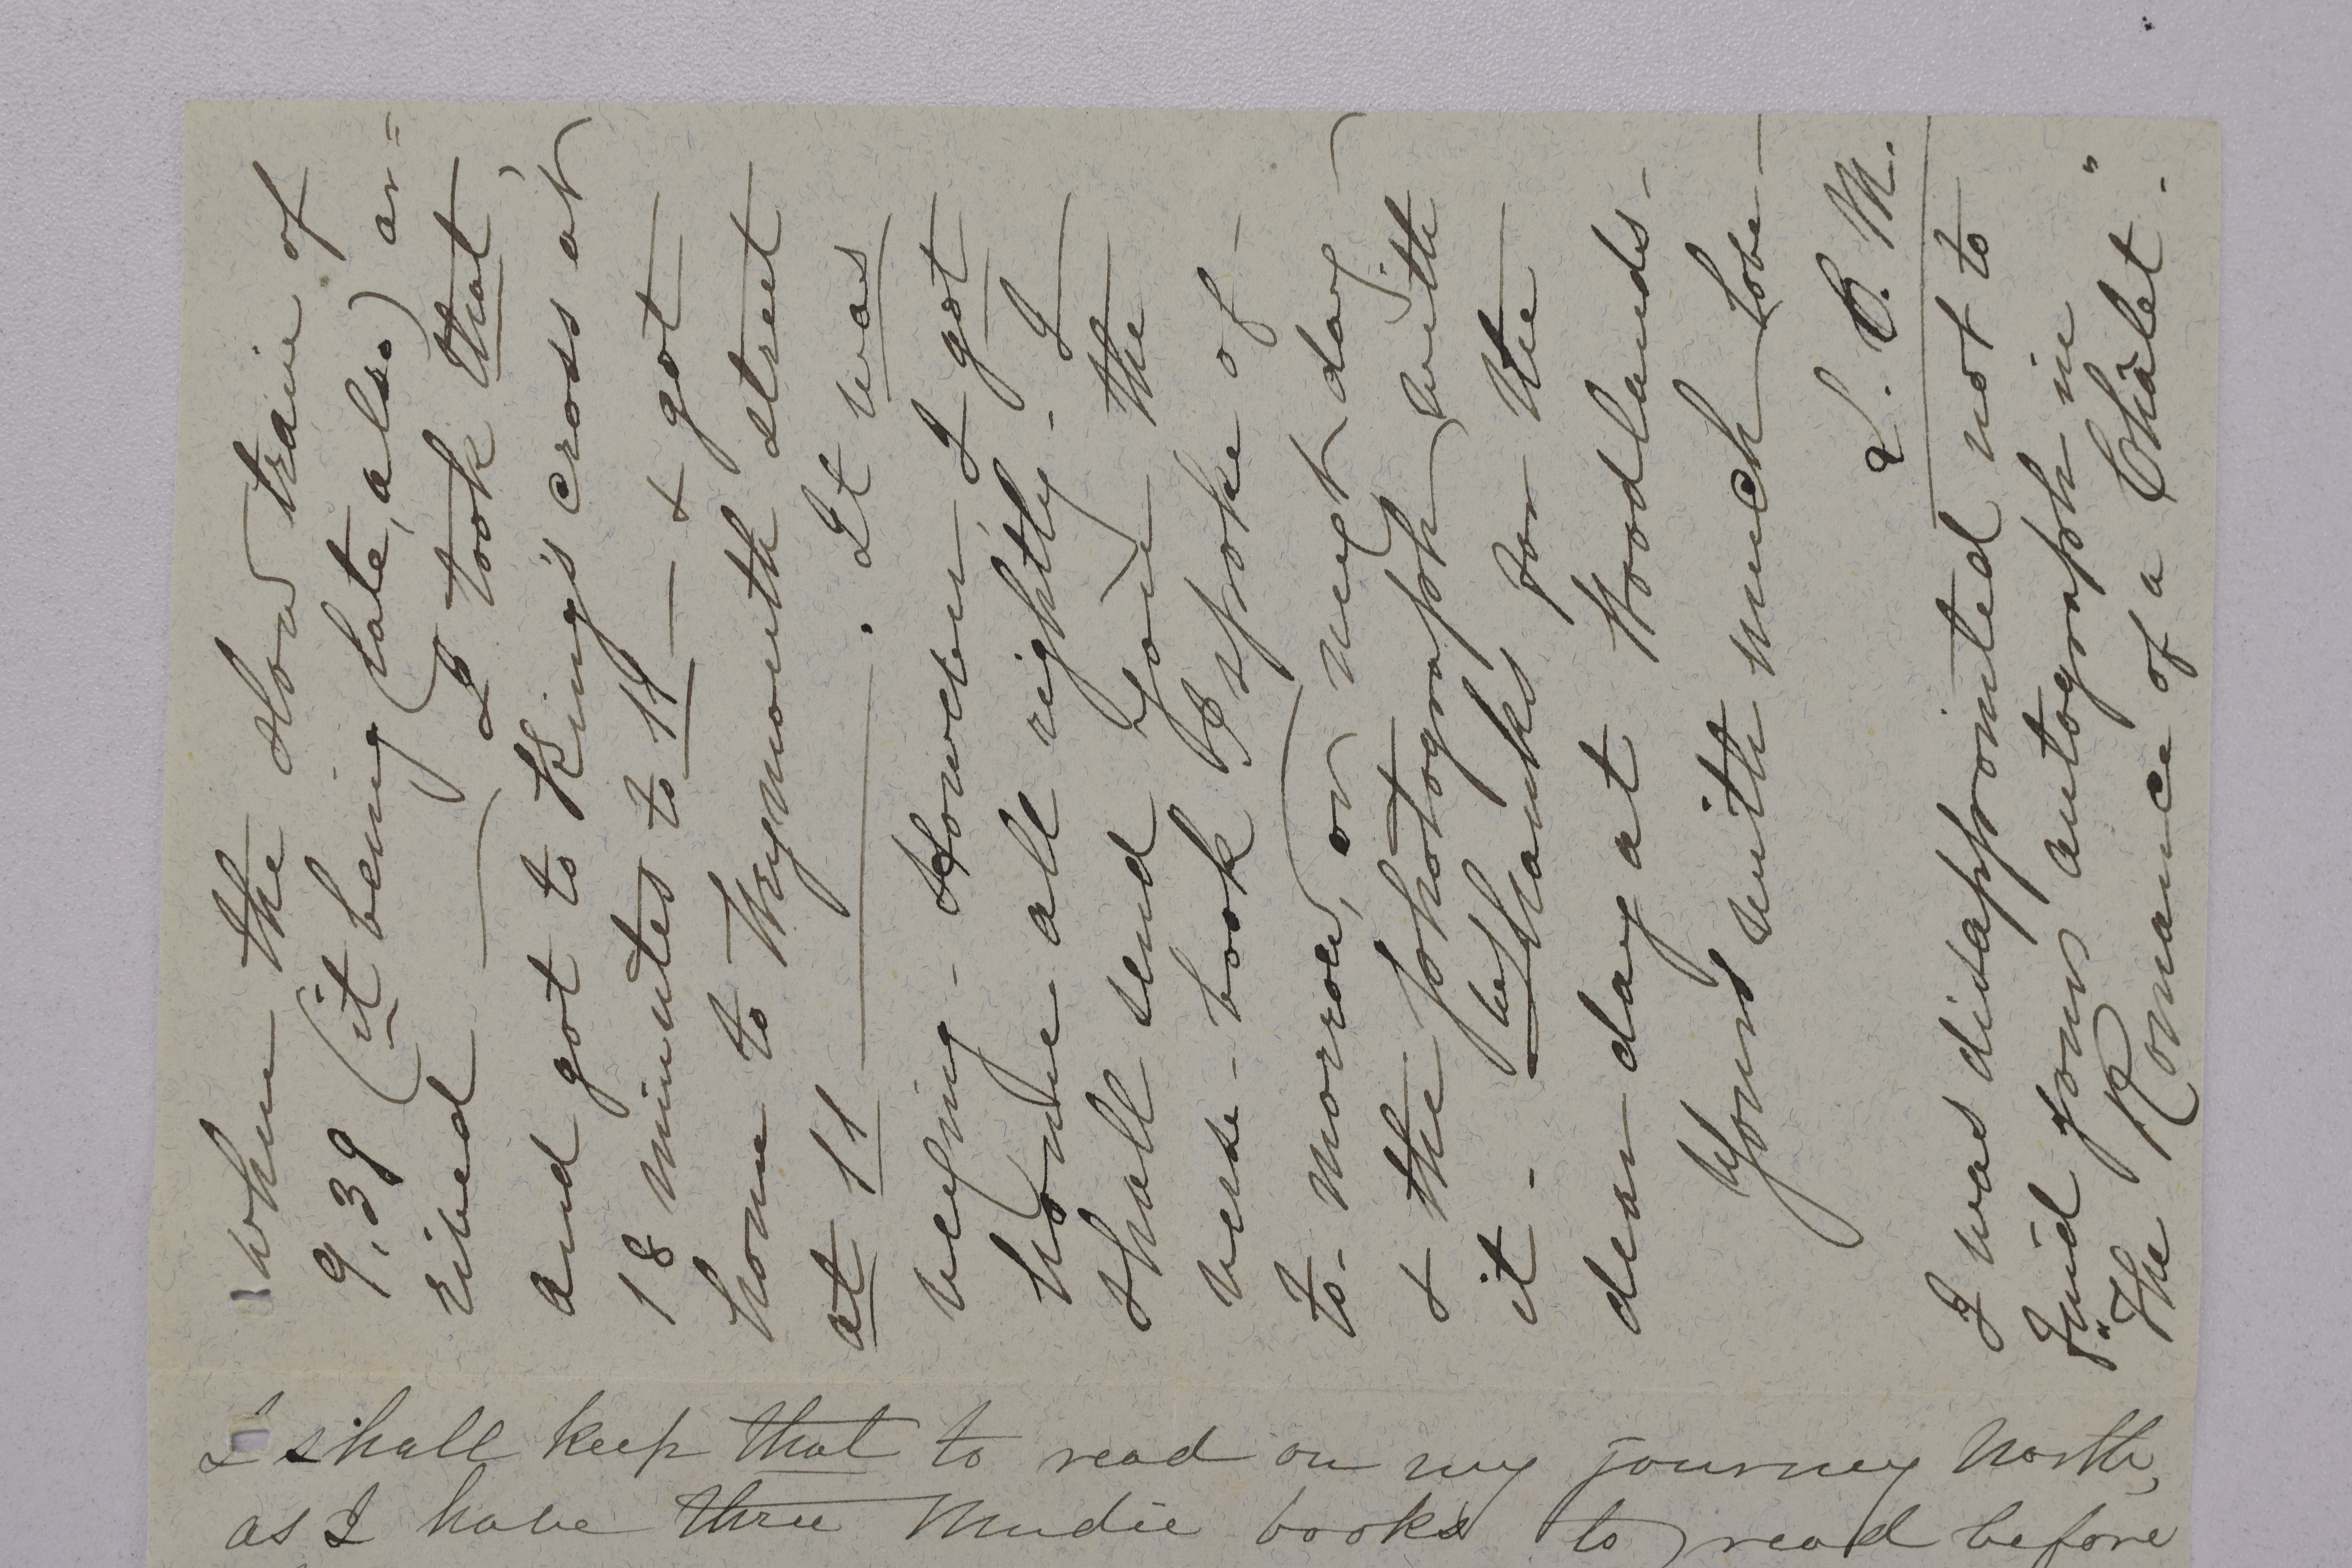 when the slow train of
9.39 (it being late, also) ar=
rived — I took that,
and got to King's Cross at
18 minutes to 11 — & got
home to Weymouth street
at 11 — . It was
vexing - However, I got
home all rightly. I
shall send you the
verse-book I spoke of -
to-morrow, or next day
& the photograph with
it - best thanks for the
dear day at Woodlands -
Yours with much love —
L. B. M.
I was disappointed not to
find your autograph in
"The Romance of a Châlet".
I shall keep that to read on my journey North,
as I have three Mudie books to read before